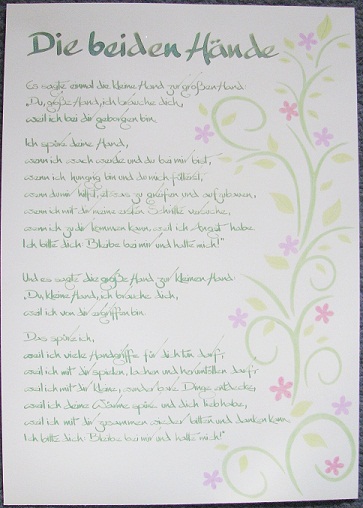 Die beiden Hände
Es sagte einmal die kleine Hand zur großen Hand:
"Du, große Hand, ich brauche dich,
weil ich bei dir geborgen bin.
Ich spüre deine Hand,
wenn ich wach werde und du bei mir bist,
wenn ich hungrig bin und du mich fütterst,
wenn du mir hilfst, etwas zu greifen und aufzubauen,
wenn ich mit dir meine ersten Schritte versuche,
wenn ich zu dir kommen kann, weil ich Angst habe.
Ich bitte dich: Bleibe bei mir und halte mich!"
Und es sagte die große Hand zur kleinen Hand:
"Du, kleine Hand, ich brauche dich,
weil ich von dir ergriffen bin.
Das spüre ich,
weil ich viele Handgriffe für dich tun darf,
weil ich mit dir spielen, lachen und herumtollen darf,
weil ich mit dir kleine, wunderbare Dinge entdecke,
weil ich deine Wärme spüre und dich lieb habe,
weil ich mit dir zusammen wieder bitten und danken kann.
Ich bitte dich: Bleibe bei mir und halte mich!"